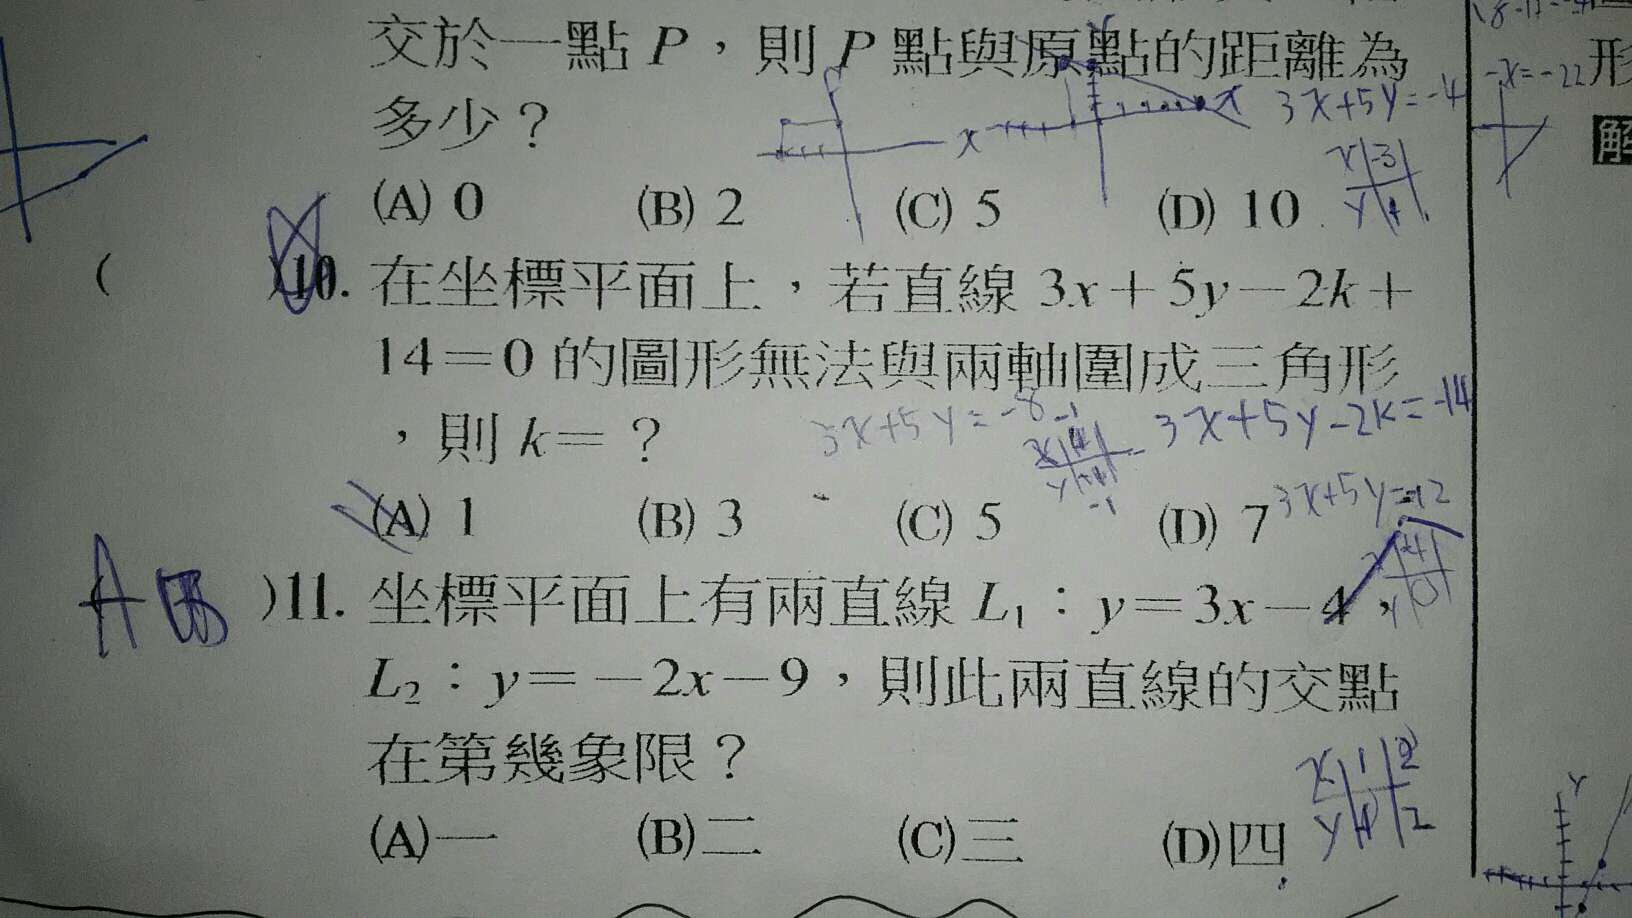 交於一點 P，則 P 點與原點的距離為
多少？
3x+5y=-4
x -3
-x=-22
形
解
(A) 0 (B) 2 (C) 5 (D) 10
( )10. 在坐標平面上，若直線 3x＋5y－2k＋
14＝0 的圖形無法與兩軸圍成三角形
，則 k＝？
3x+5y=-8
3x+5y-2k=-14
3x+5y=-12
(A) 1 (B) 3 (C) 5 (D) 7
A )11. 坐標平面上有兩直線 L₁：y＝3x－4，
L₂：y＝－2x－9，則此兩直線的交點
在第幾象限？
x 1 2
y 2
(A)一 (B)二 (C)三 (D)四
Y